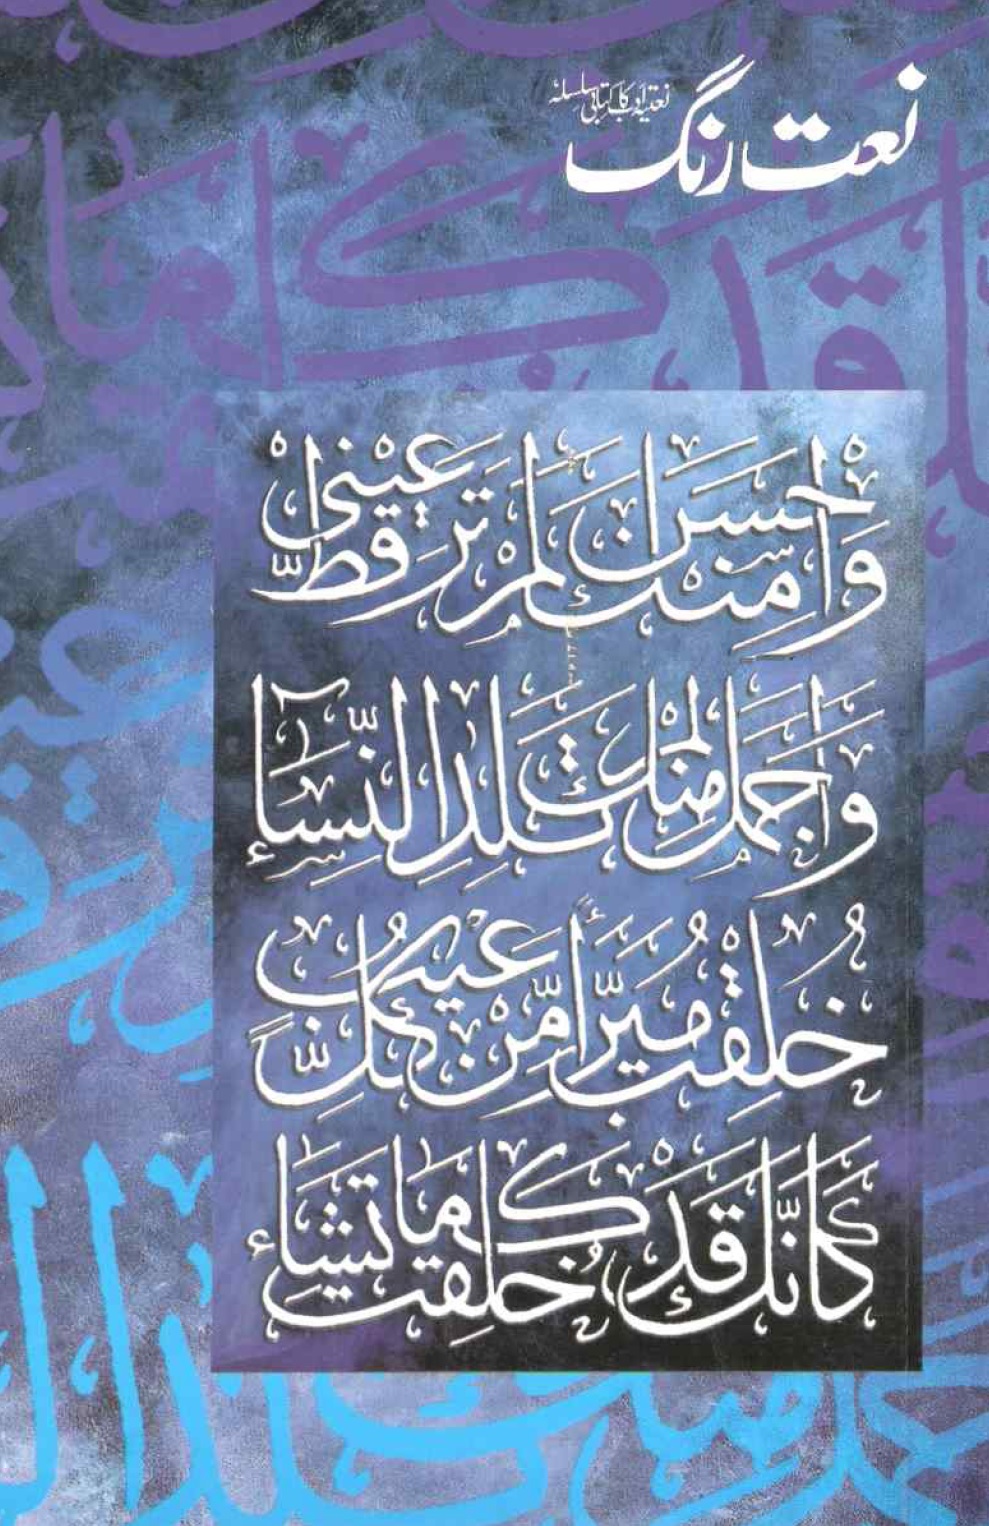 نعت رنگ
نعتیہ ادب کا کتابی سلسلہ
وَاَحْسَنُ مِنْكَ لَمْ تَرَ قَطُّ عَيْنِیْ
وَاَجْمَلُ مِنْكَ لَمْ تَلِدِ النِّسَآءُ
خُلِقْتَ مُبَرَّأً مِّنْ كُلِّ عَيْبٍ
كَاَنَّكَ قَدْ خُلِقْتَ كَمَا تَشَآءُ